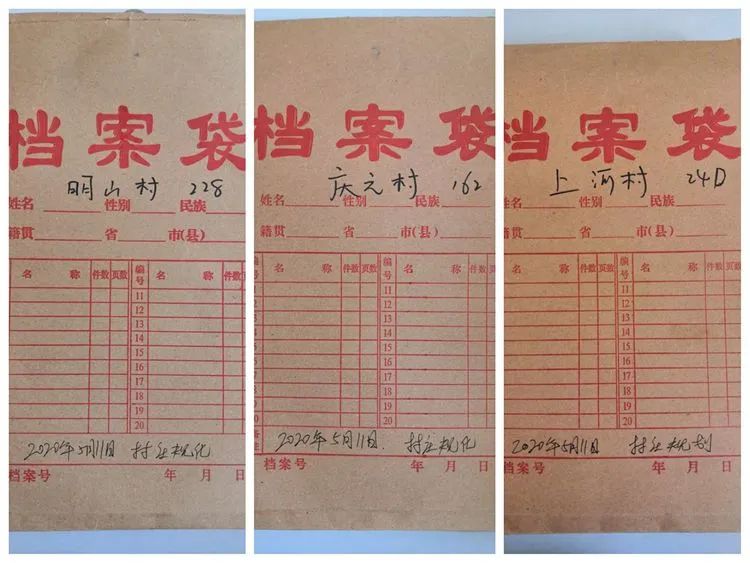 档案袋
明山村 228
姓名 性别 民族
籍贯 省 市(县)
名 称 件数 页数 编号 名 称 件数 页数
11
12
13
14
15
16
17
18
19
20
2020年5月11日 村庄规化
档案号 年 月 日
档案袋
庆元村 162
姓名 性别 民族
籍贯 省 市(县)
名 称 件数 页数 编号 名 称 件数 页数
11
12
13
14
15
16
17
18
19
20
2020年5月11日. 村庄规化
档案号 年 月 日
档案袋
上河村 240
姓名 性别 民族
籍贯 省 市(县)
名 称 件数 页数 编号 名 称 件数 页数
11
12
13
14
15
16
17
18
19
20
2020年5月11日 村庄规划
档案号 年 月 日